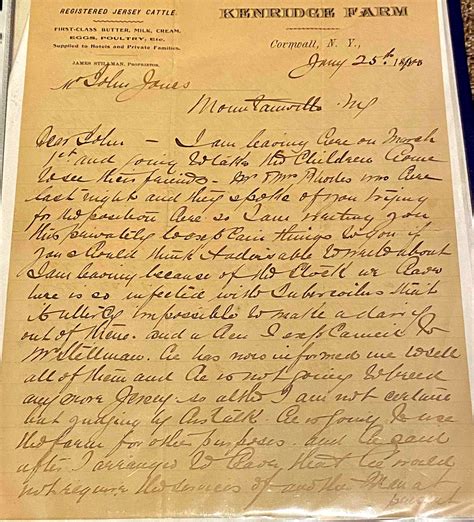 REGISTERED JERSEY CATTLE.
FIRST-CLASS BUTTER, MILK, CREAM,
EGGS, POULTRY, Etc.
Supplied to Hotels and Private Families.
JAMES STILLMAN, PROPRIETOR.
KENRIDGE FARM
Cornwall, N. Y.,
Jany 25th
Mr John Jones
Mountainville NY
Dear John - I am leaving here on March
1st and going West the Children Come
to see their friends - Mr & Mrs Rhodes was here
last night and they spoke of you trying
for the position here so I am writing you
this privately to explain things to you if
you should think Advisable to write about
I am leaving because of the Stock we have
here is so infected with Tuberculos that
it is impossible to make a dairy
out of them. and when I explained to
Mr Stillman. he has now informed me to sell
all of them and he is not going to breed
any more Jersey - so altho I am not certain
but judging by his talk he is going to use
the farm for other purposes. and he said
after I arranged to leave that he would
not require the services of another Man at
present